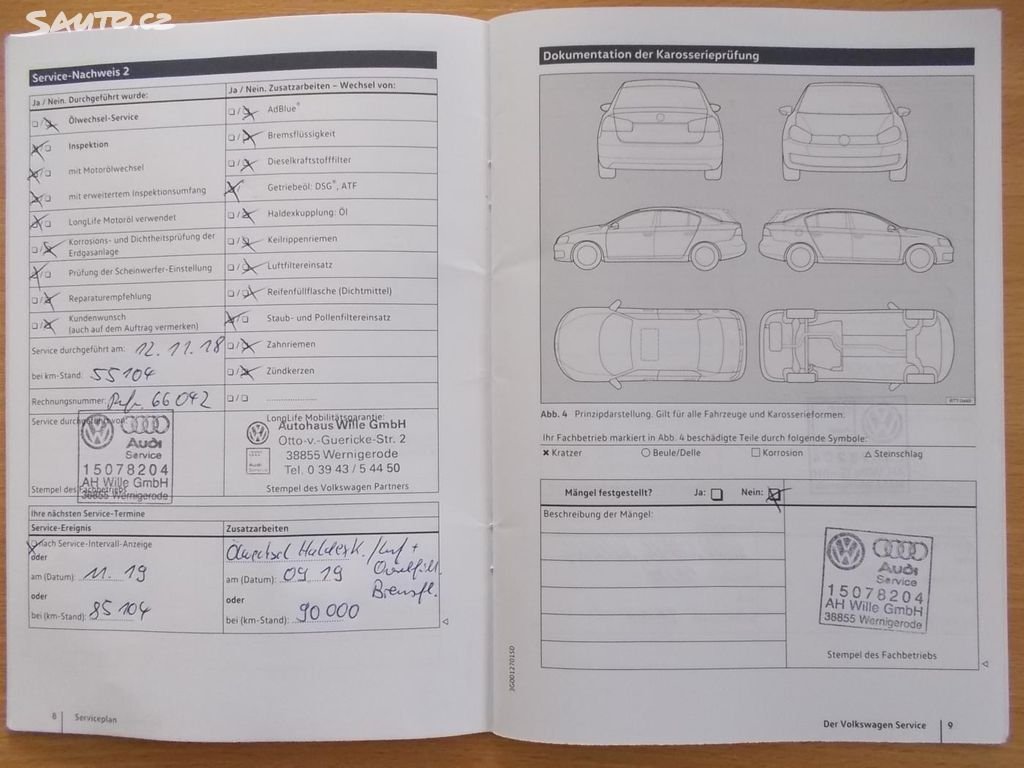 SAUTO.CZ
Service-Nachweis 2
Ja / Nein. Durchgeführt wurde:
Ölwechsel-Service
Inspektion
mit Motorölwechsel
mit erweitertem Inspektionsumfang
LongLife Motoröl verwendet
Korrosions- und Dichtheitsprüfung der
Erdgasanlage
Prüfung der Scheinwerfer-Einstellung
Reparaturempfehlung
Kundenwunsch
(auch auf dem Auftrag vermerken)
Service durchgeführt am: 12.11.18
bei km-Stand: 55104
Rechnungsnummer: 66042
Service durchgeführt von:
Audi
Service
15078204
AH Wille GmbH
38855 Wernigerode
Stempel des Fachbetriebs
Ja / Nein. Zusatzarbeiten – Wechsel von:
AdBlue®
Bremsflüssigkeit
Dieselkraftstofffilter
Getriebeöl: DSG®, ATF
Haldexkupplung: Öl
Keilrippenriemen
Luftfiltereinsatz
Reifenfüllflasche (Dichtmittel)
Staub- und Pollenfiltereinsatz
Zahnriemen
Zündkerzen
LongLife Mobilitätsgarantie:
Autohaus Wille GmbH
Otto-v.-Guericke-Str. 2
38855 Wernigerode
Tel. 0 39 43 / 5 44 50
Stempel des Volkswagen Partners
Ihre nächsten Service-Termine
Service-Ereignis
nach Service-Intervall-Anzeige
oder
am (Datum): 11.19
oder
bei (km-Stand): 85104
Zusatzarbeiten
Ölwechsel Haldexk.
Bremsfl.
am (Datum): 09 19
oder
bei (km-Stand): 90 000
8 Serviceplan
Dokumentation der Karosserieprüfung
Abb. 4 Prinzipdarstellung. Gilt für alle Fahrzeuge und Karosserieformen.
Ihr Fachbetrieb markiert in Abb. 4 beschädigte Teile durch folgende Symbole:
× Kratzer ○ Beule/Delle □ Korrosion △ Steinschlag
Mängel festgestellt? Ja: Nein:
Beschreibung der Mängel:
Audi
Service
15078204
AH Wille GmbH
38855 Wernigerode
Stempel des Fachbetriebs
3G0012701SD
Der Volkswagen Service 9